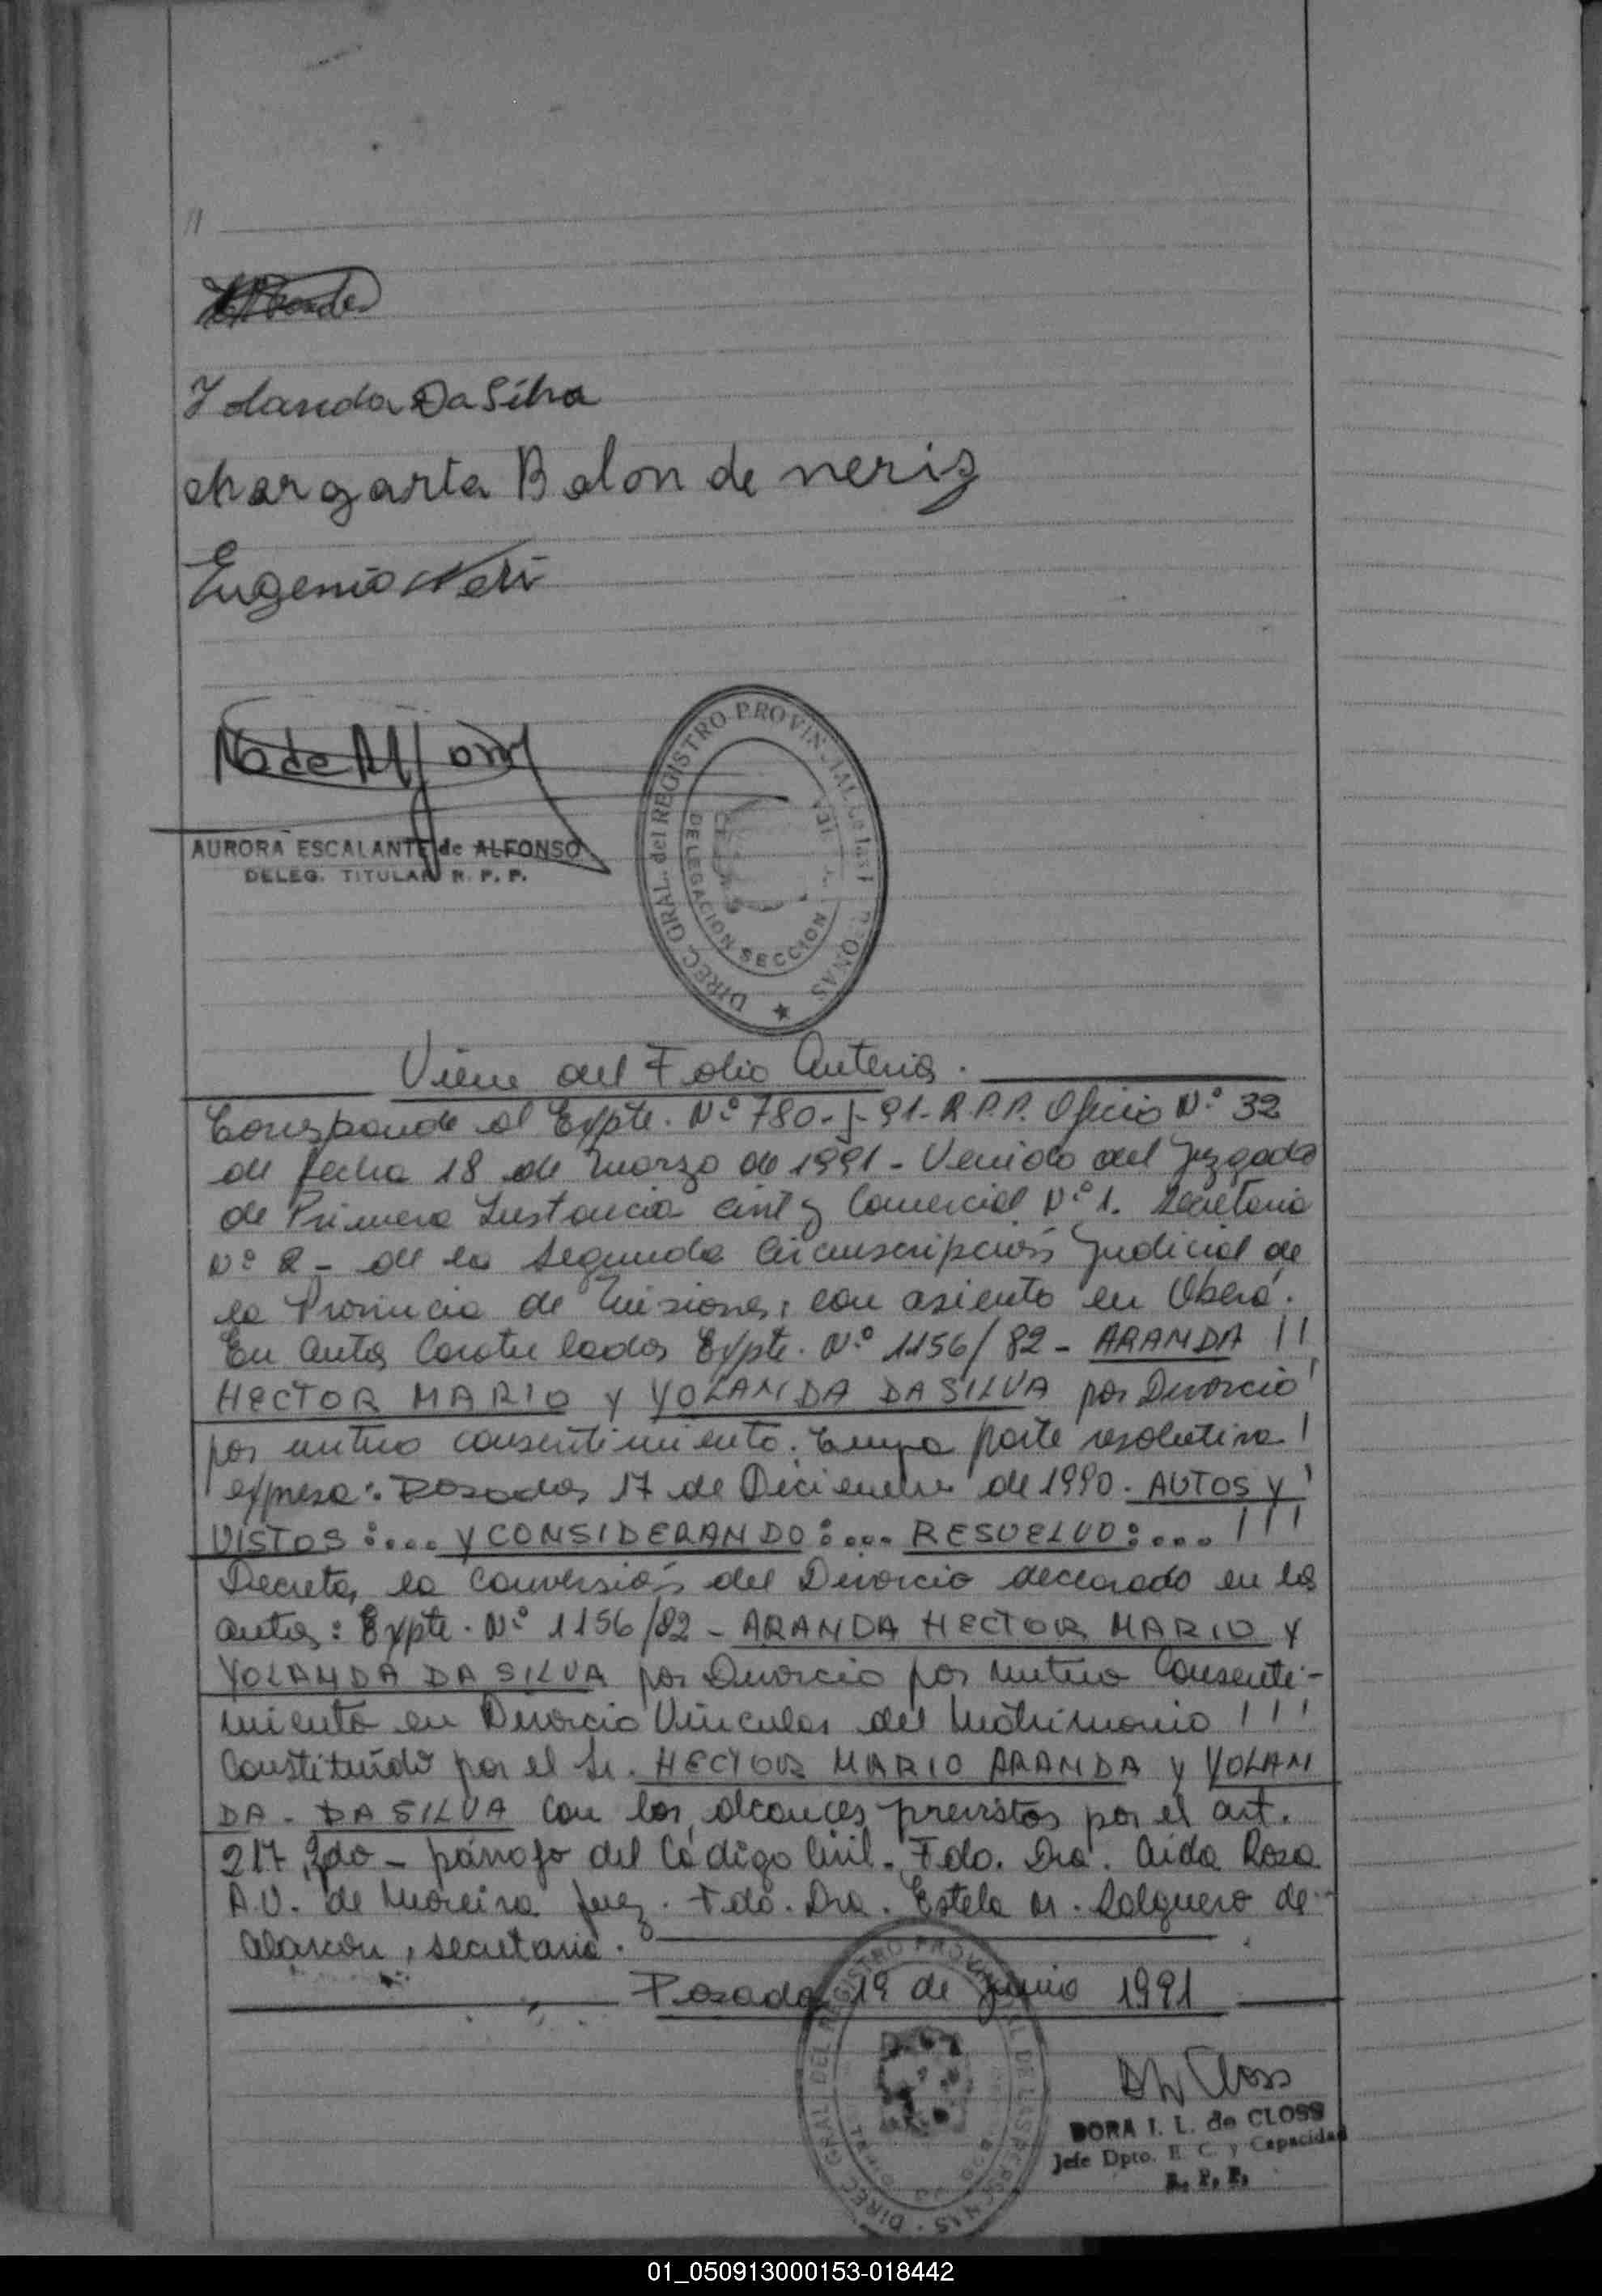 Yolanda Da Silva
Margarta Balon de neris
Eugenio Neri
AURORA ESCALANTE de ALFONSO
DELEG. TITULAR R. P. P.
DIREC. GRAL. del REGISTRO PROVINCIAL de las PERSONAS
DELEGACION SECCION
Viene del Folio Anterior.
Corresponde al Expte. Nº 780-J-91-R.P.P. Oficio Nº 32
de fecha 18 de Marzo de 1991 - Venido del Juzgado
de Primera Instancia Civil y Comercial Nº 1. Secretaria
Nº 2 - de la Segunda Circunscripción Judicial de
la Provincia de Misiones, con asiento en Oberá.
En autos Caratulados Expte. Nº 1156/82 - ARANDA !!
HECTOR MARIO Y YOLANDA DA SILVA por Divorcio !
por mutuo consentimiento. Cuya parte resolutiva !
expresa: Posadas, 17 de Diciembre de 1990. AUTOS Y !
VISTOS:.... Y CONSIDERANDO:.... RESUELVO:.... !!!
Decretar la conversión del Divorcio declarado en los
autos: Expte. Nº 1156/82 - ARANDA HECTOR MARIO Y
YOLANDA DA SILVA por Divorcio por Mutuo Consenti-
miento en Divorcio Vincular del Matrimonio !!!
Constituído por el Sr. HECTOR MARIO ARANDA y YOLAN
DA - DA SILVA con los alcances previstos por el art.
217, 2do - párrafo del Código Civil. Fdo. Dra. Aida Rosa
A.V. de Moreira Juez. Fdo. Dra. Estela M. Salguero de
Alarcon, secretaria.
Posadas 19 de Junio 1991
DIREC. GRAL DEL REGISTRO PROVINCIAL DE LAS PERSONAS
DORA I. L. de CLOSS
Jefe Dpto. E. C. y Capacidad
R. P. P.
01_050913000153-018442